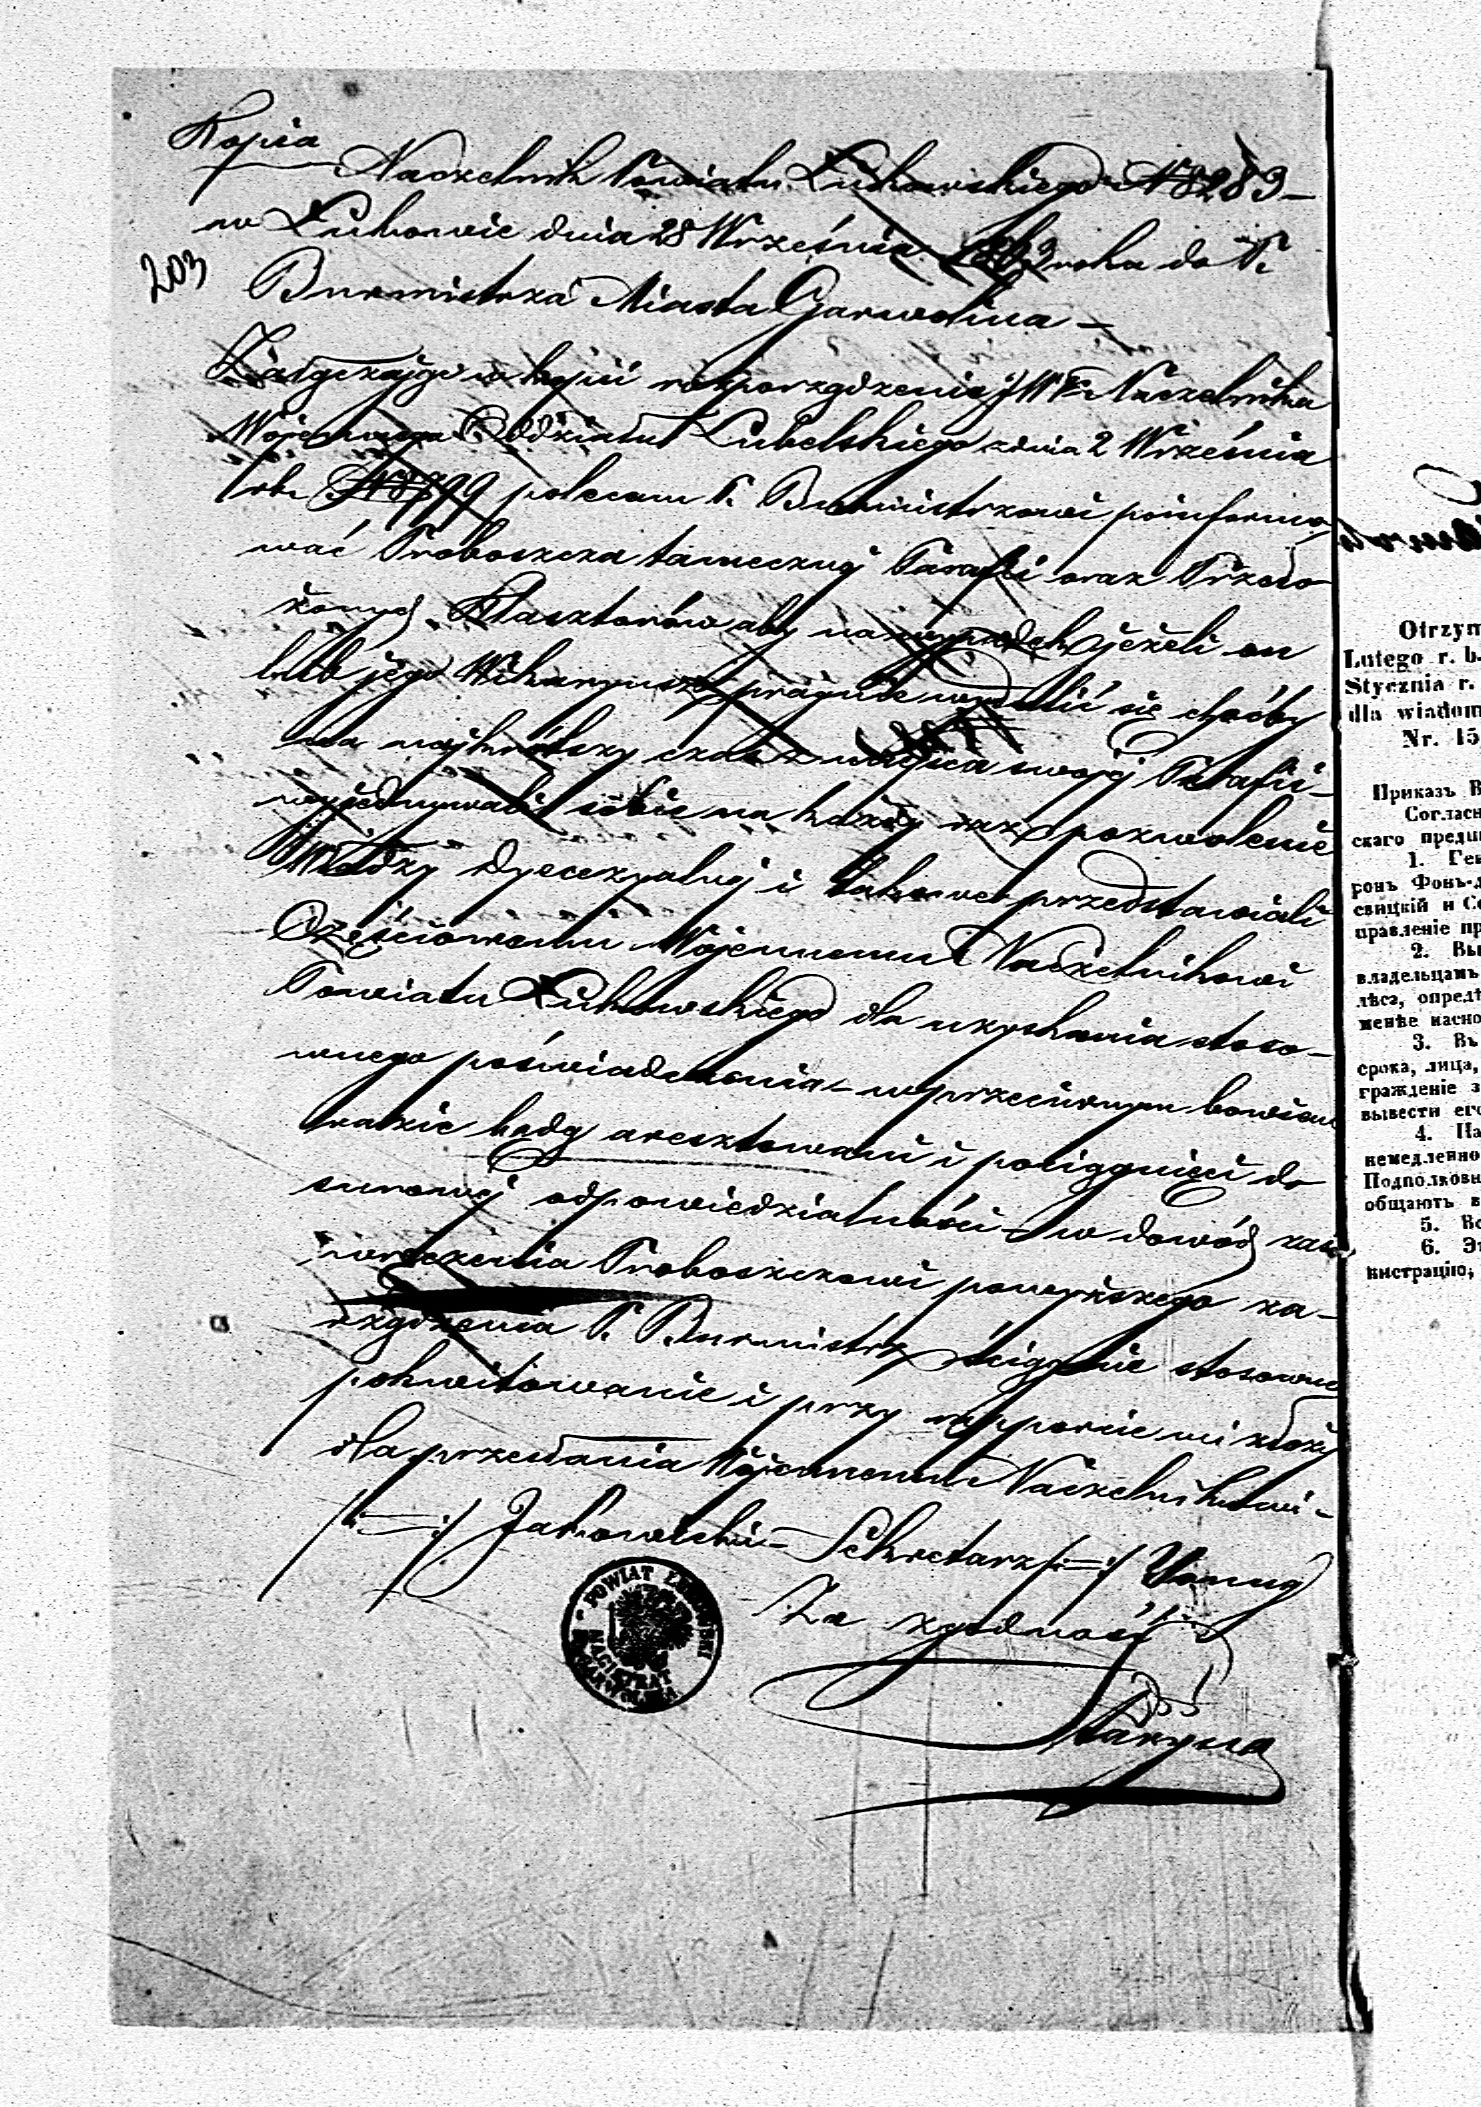 Kopia
Naczelnik Powiatu Łukowskiego N 8283 –
w Łukowie dnia 28 Września 1863 roku do P.
203
Burmistrza Miasta Garwolina –
Załączając w kopii rozporządzenie JW P. Naczelnika
Wojennego Oddziału Lubelskiego z dnia 2 Września
rb. polecam P. Burmistrzowi poinformo
wać Proboszcza tamecznej Parafii oraz Przeło
żonych Klasztorów aby na wypadek jeżeli on
lub jego Wikaryusz pragnie wydalić się choćby
na najkrótszy czas z miejsca swojej Parafii –
wyjednywali sobie na każdy raz pozwolenie
Władzy dyecezyalnej i takowe przedstawiali
Częściowemu Wojennemu Naczelnikowi
Powiatu Łukowskiego dla uzyskania stoso –
wnego poświadczenia – w przeciwnym bowiem
razie będą aresztowani i pociągnięci do
surowej odpowiedzialności – w dowód zaś
wręczenia Proboszczowi powyższego za –
rządzenia P. Burmistrz ściągnie stosowne
pokwitowanie i przy rapporcie mi złoży
dla przesłania Wojennemu Naczelnikowi –
/:–:/ Sekretarz /:–:/
Za zgodność
POWIAT ŁUKOWSKI
MAGISTRAT
M. GARWOLINA
Otrzym
Lutego r. b.
Stycznia r.
dla wiadom
Nr. 15
Приказъ В
Согласн
скаго предп
1. Ген
ронъ Фонъ-д
свицкій и Се
правленіе пр
2. Вы
владельцамъ
лѣса, опредѣ
менѣе насно
3. Въ
срока, лица,
гражденіе з
вывести его
4. На
немедленно
Подполковн
общаютъ в
5. Вс
6. Эт
нистрацію,